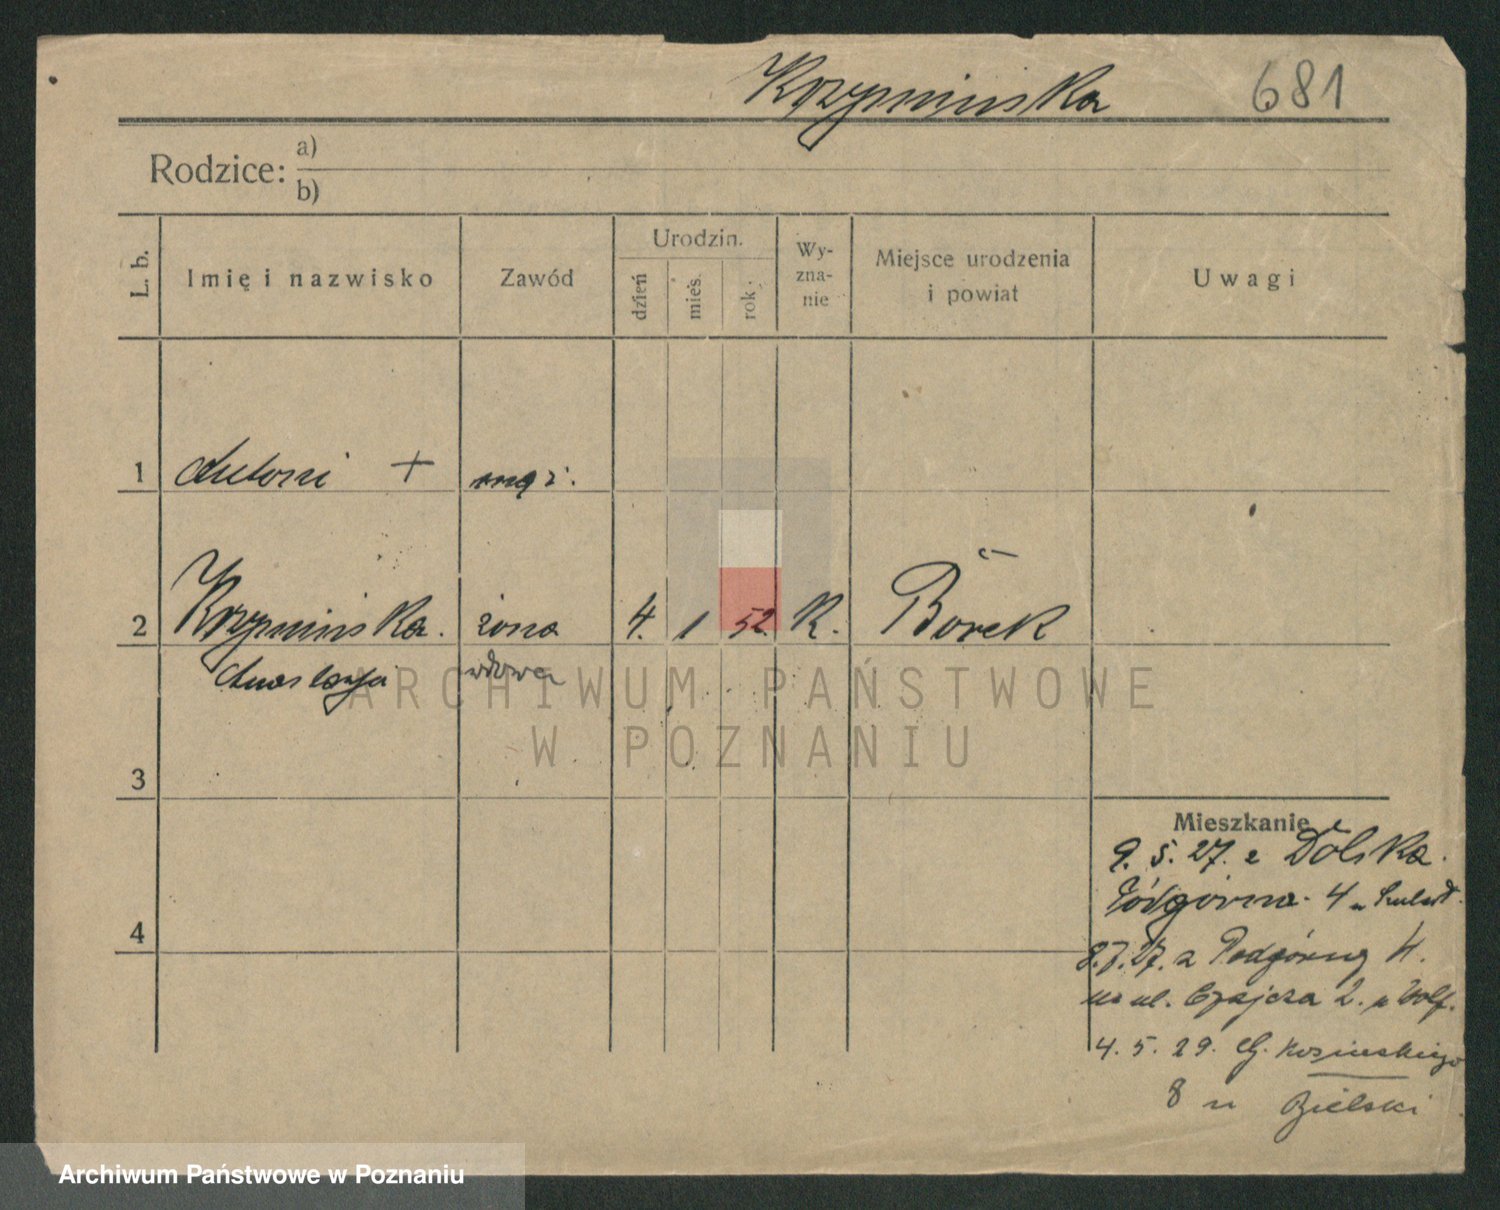 Krzymińska 681
Rodzice: a)
b)
L. b. Imię i nazwisko Zawód Urodzin. dzień mieś. rok. Wy-zna-nie Miejsce urodzenia i powiat Uwagi
1 Antoni + mąż.
2 Krzymińska. żona 4. 1 52. K. Borek
Anastazja wdowa
ARCHIWUM PAŃSTWOWE
W POZNANIU
3
Mieszkanie
9. 5. 27. z Dolska.
Podgórna. 4
4
8.7.27. z Podgórnej 4.
na ul. Czajcza 2. u Wolf.
4. 5. 29. Kosińskiego
8 u Bielski
Archiwum Państwowe w Poznaniu